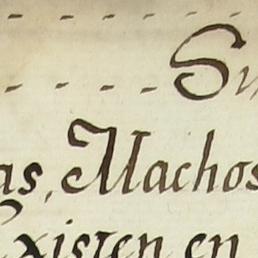 as, Machos
Existen en